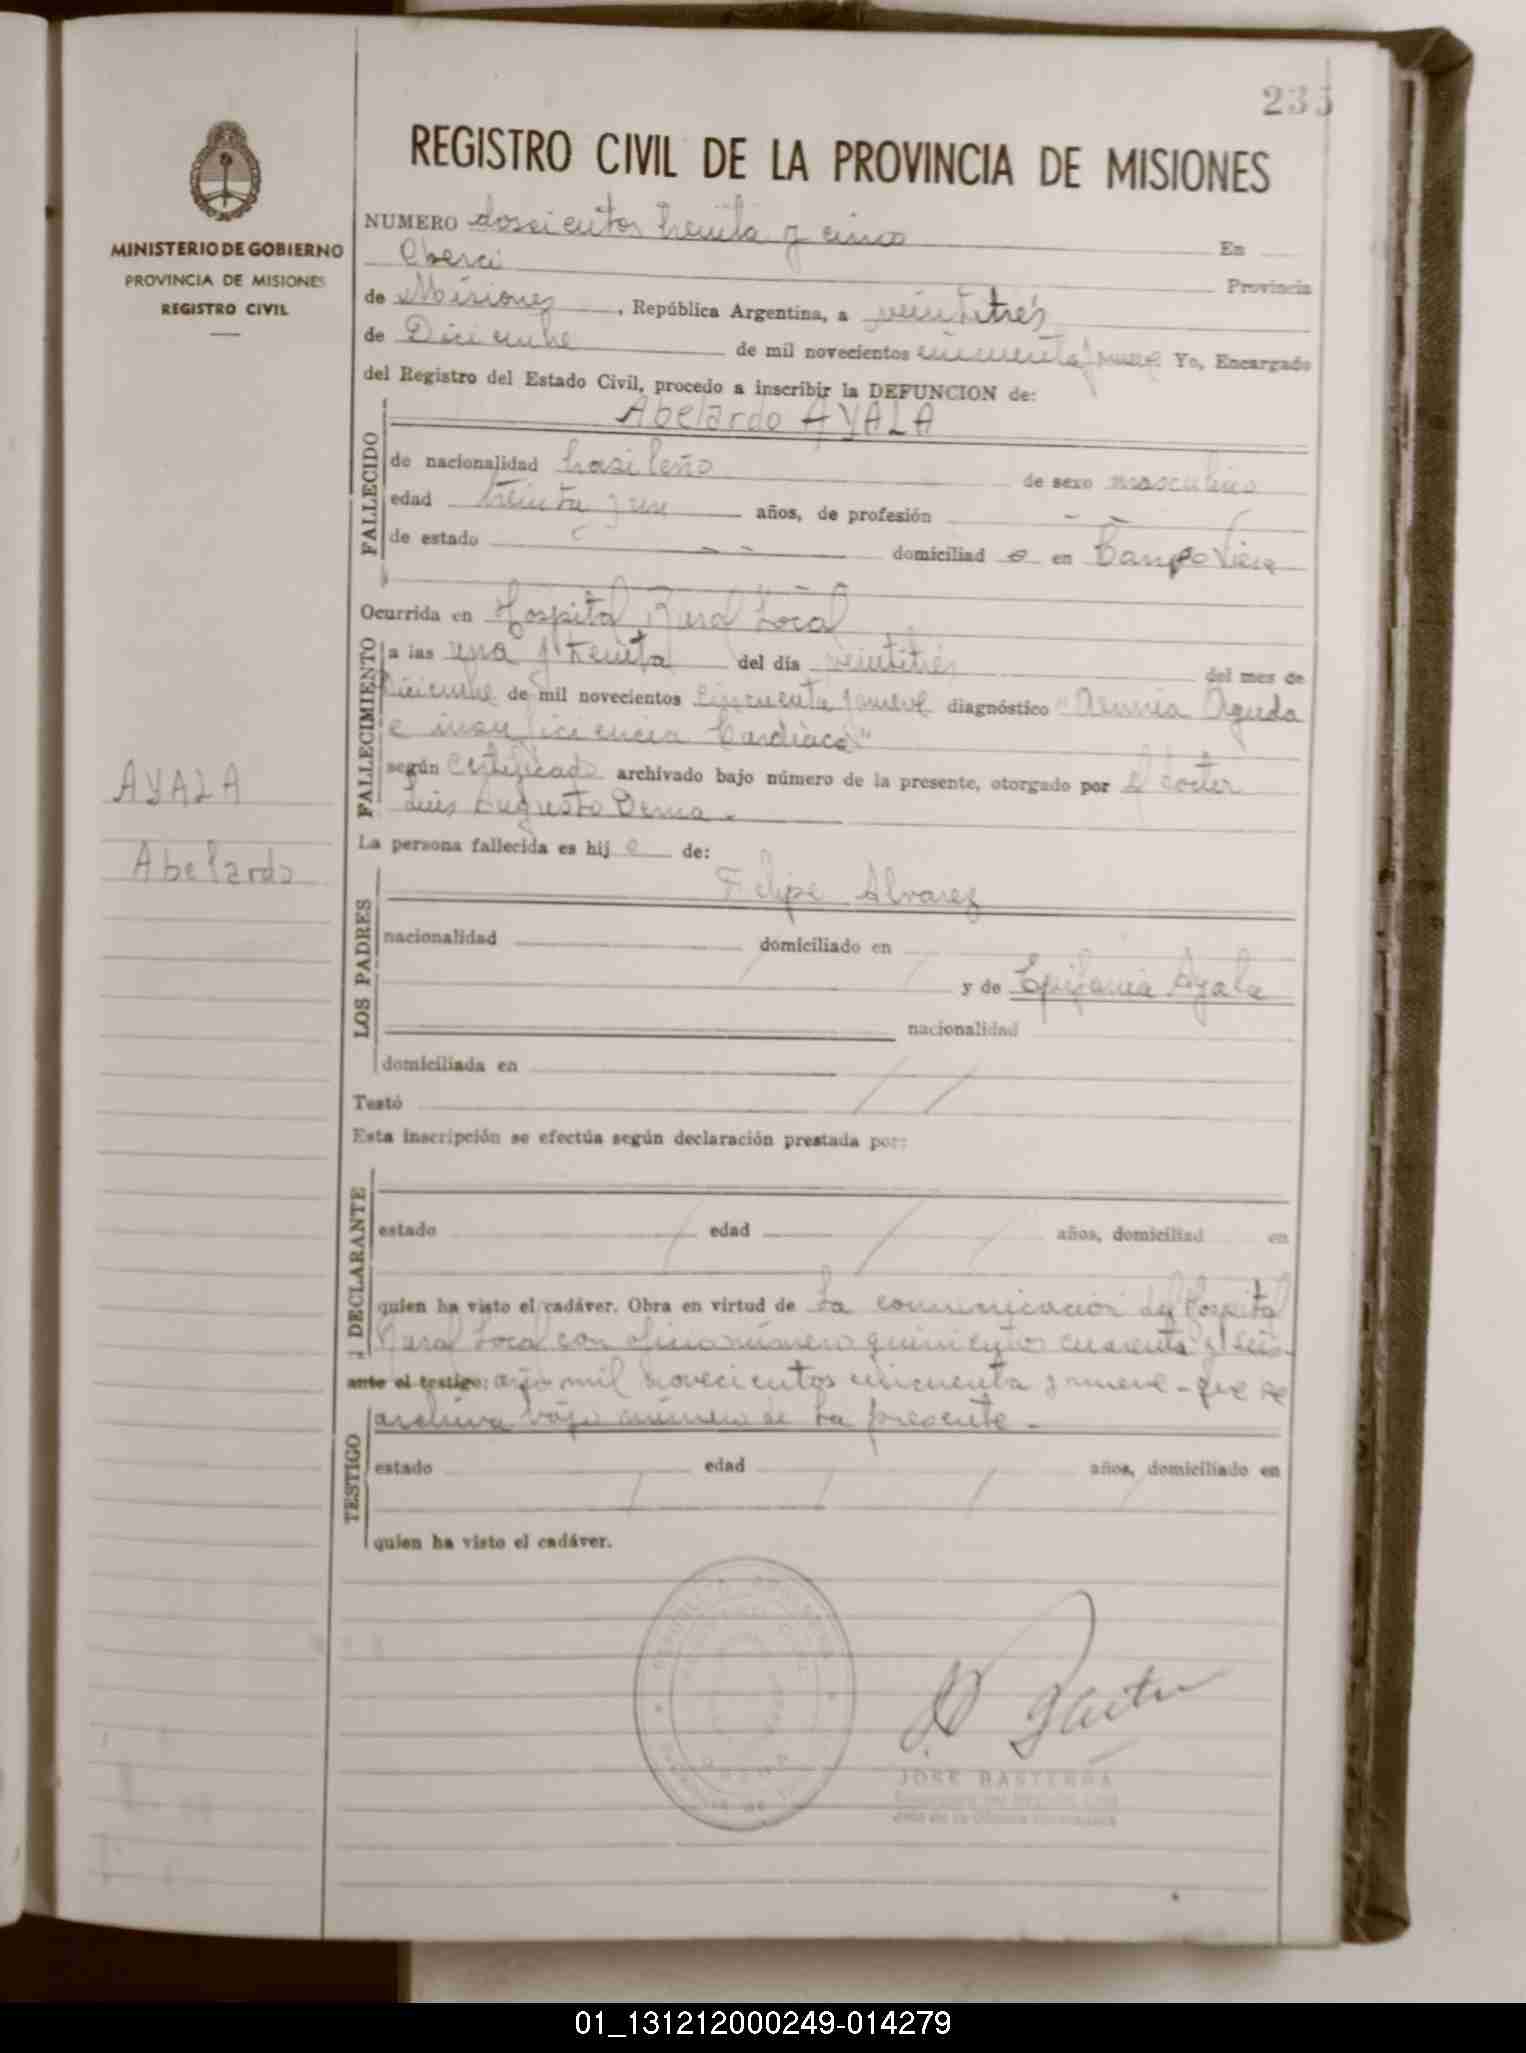 235
REGISTRO CIVIL DE LA PROVINCIA DE MISIONES
MINISTERIO DE GOBIERNO
PROVINCIA DE MISIONES
REGISTRO CIVIL
NUMERO doscientos treinta y cinco En
Oberá Provincia
de Misiones, República Argentina, a veintitrés
de Diciembre de mil novecientos cincuenta y nueve Yo, Encargado
del Registro del Estado Civil, procedo a inscribir la DEFUNCION de:
Abelardo AYALA
FALLECIDO
de nacionalidad brasileño de sexo masculino
edad treinta y un años, de profesión - -
de estado - - domiciliad o en Campo Viera
Ocurrida en Hospital Rural Local
FALLECIMIENTO
a las una y treinta del día veintitrés del mes de
Diciembre de mil novecientos cincuenta y nueve diagnóstico "Anemia Aguda
e insuficiencia Cardíaca"
según certificado archivado bajo número de la presente, otorgado por el doctor
Luis Augusto
AYALA
Abelardo
La persona fallecida es hij o de:
Felipe Alvarez
LOS PADRES
nacionalidad domiciliado en
y de Epifania Ayala
nacionalidad
domiciliada en
Testó
Esta inscripción se efectúa según declaración prestada por:
DECLARANTE
estado edad años, domiciliad en
quien ha visto el cadáver. Obra en virtud de la comunicación del Hospital
Rural Local con oficio número quinientos cuarenta y seis-
ante el testigo: año mil novecientos cincuenta y nueve - que se
archiva bajo número de la presente -
TESTIGO
estado edad años, domiciliado en
quien ha visto el cadáver.
JOSE BASTERRA
01_131212000249-014279